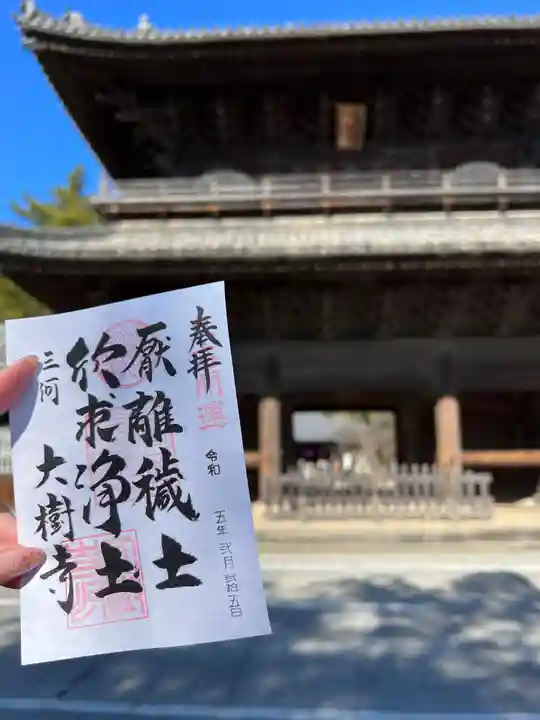 奉拝
開運
令和
五年 弐月 弐拾五日
厭離穢土
欣求浄土
三河
大樹寺